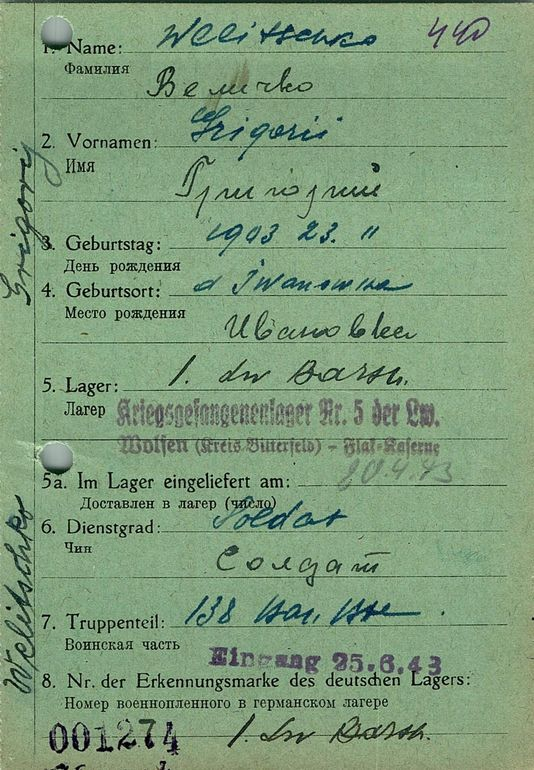 1. Name: Welitschko 440
Фамилия
Величко
2. Vornamen: Grigorii
Имя
Григорий
3. Geburtstag: 1903 23. 11
День рождения
4. Geburtsort: d Iwanowka
Место рождения
Ивановка
5. Lager: 1. Lw Barsch.
Лагер
Kriegsgefangenenlager Nr. 5 der Lw.
Wolfen (Kreis Bitterfeld) – Flak-Kaserne
5a. Im Lager eingeliefert am: 20.4.43
Доставлен в лагер (число)
6. Dienstgrad: Soldat
Чин
Солдат
7. Truppenteil: 138
Воинская часть
Eingang 25.6.43
8. Nr. der Erkennungsmarke des deutschen Lagers:
Номер военнопленного в германском лагере
001274 1. Lw Barsch.
Welitschko Grigorij